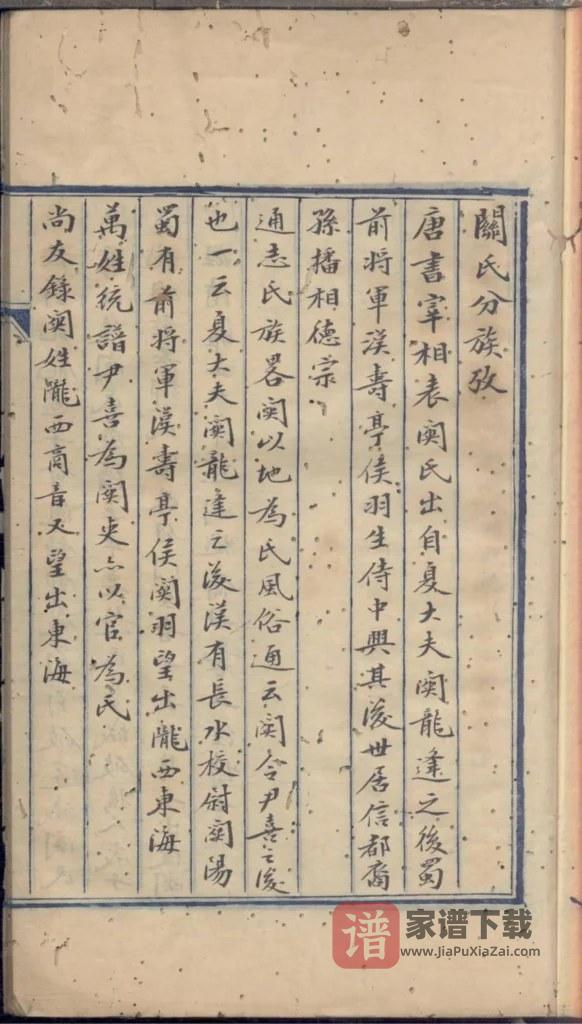 關氏分族攷
唐書宰相表関氏出自夏大夫関龍逢之後蜀
前將軍漢壽亭侯羽生侍中興其後世居信都裔
孫播相德宗
通志氏族畧関以地為氏風俗通云関令尹喜之後
也一云夏大夫関龍逢之後漢有長水校尉関陽
蜀有前將軍漢壽亭侯関羽望出隴西東海
萬姓統譜尹喜為関吏亦以官為氏
尚友錄関姓隴西商音又望出東海
谱 家谱下载
www.JiaPuXiaZai.com